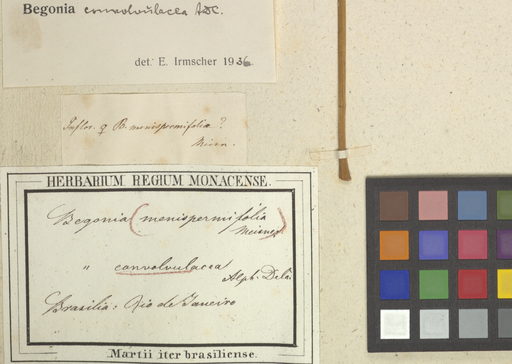 Begonia convolvulacea ADC.
det. E. Irmscher 1936.
Inflor. ♀ B. menispermifolia ?
HERBARIUM REGIUM MONACENSE.
Begonia (menispermifolia
Meisner)
" convolvulacea
Alph. DeC.
Brasilia: Rio de Janeiro
Martii iter brasiliense.